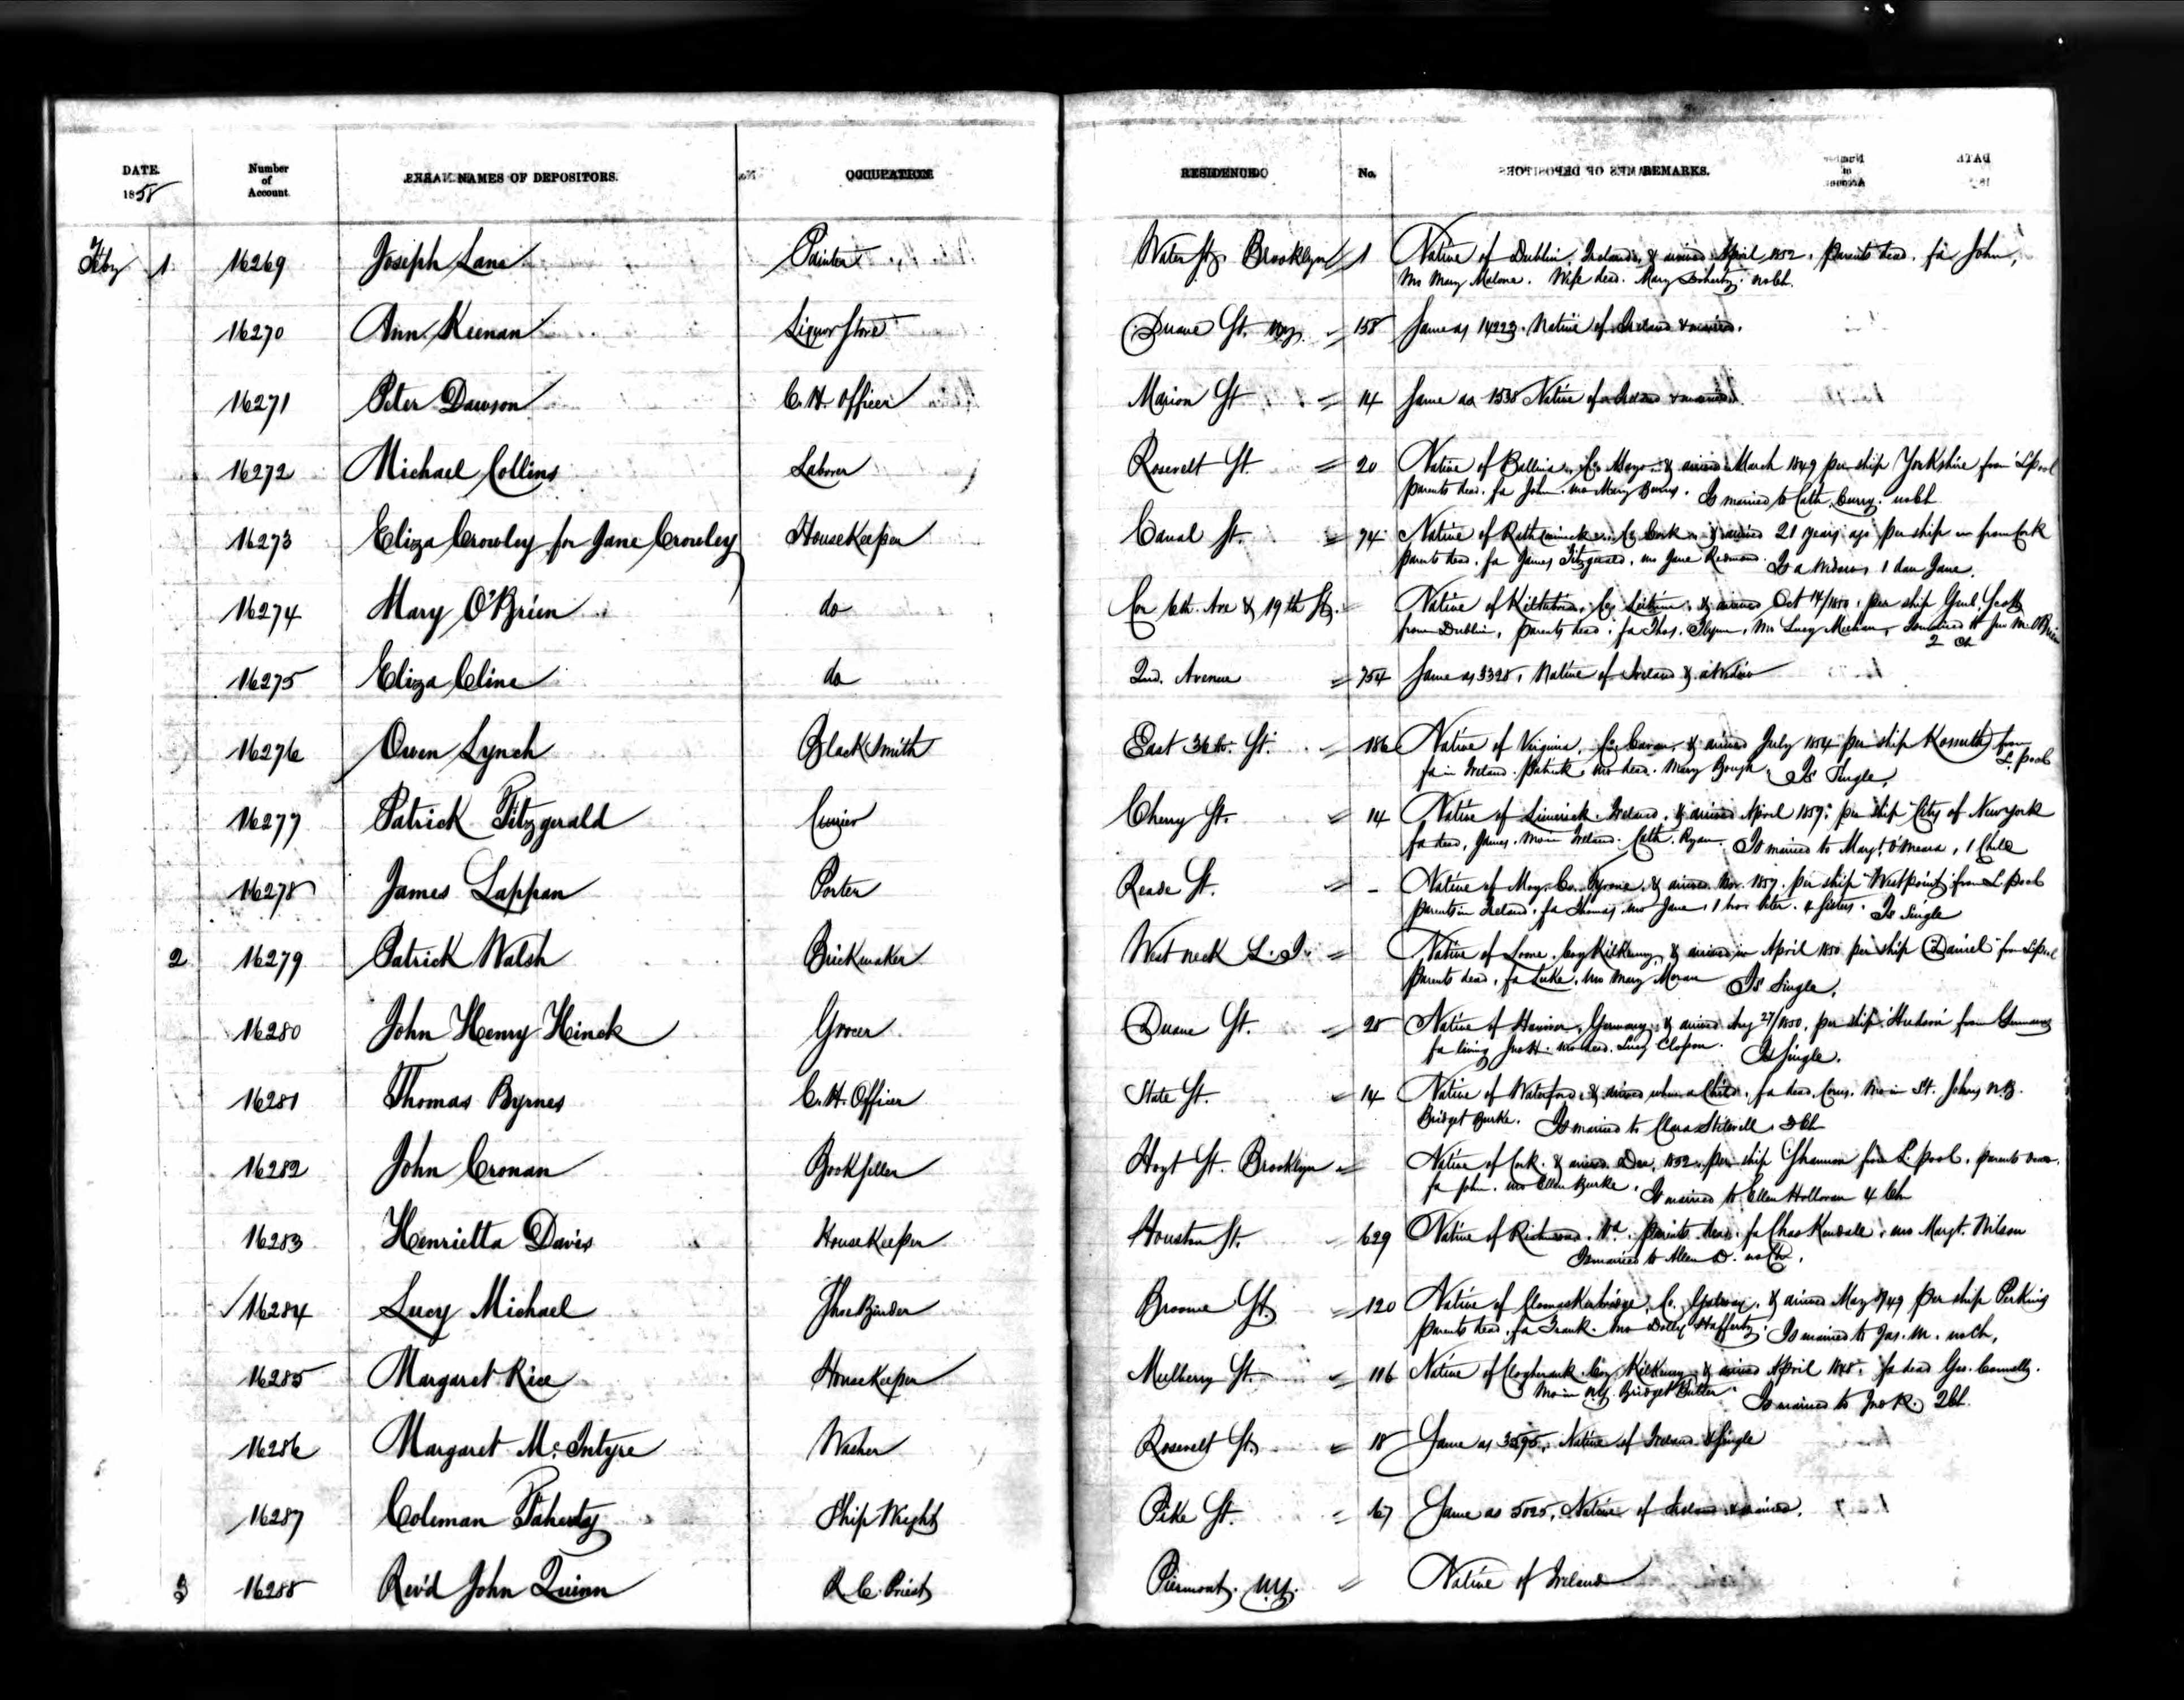 DATE. 1858
Number of Account.
NAMES OF DEPOSITORS.
OCCUPATION
RESIDENCE
No.
REMARKS.
Feby 1 16269 Joseph Lane Painter Water St. Brooklyn 1 Native of Dublin, Ireland, & arived April 1852, parents dead, fa John,
mo Mary Malone. Wife dead. Mary Doherty. no Ch.
16270 Ann Keenan Liquor Store Duane St. N.Y. 158 Same as 14223. Native of Ireland & maried.
16271 Peter Dawson C. H. Officer Marion St 14 Same as 1538 Native of Ireland & maried.
16272 Michael Collins Laborer Rosevelt St. 20 Native of Ballina, Co. Mayo & arived March 1849 per ship Yorkshire from L'pool
parents dead. fa John. mo Mary Burns. Is maried to Cath. Curry. no Ch
16273 Eliza Crowley for Jane Crowley HouseKeeper Canal St. 74 Native of Co. Cork & arived 21 years ago per ship from Cork
parents dead. fa James Fitzgerald, mo Jane Redmond. Is a Widow, 1 dau Jane.
16274 Mary O'Brien do Cor 6th. Ave & 19th St. Native of Co. Leitrim, & arived Oct 14/1850, per ship Genl. Scott
from Dublin, parents dead, fa Thos. Flynn, mo Lucy Meehan, Is maried to M. O'Brien
2 Ch
16275 Eliza Cline do 2nd. Avenue 754 Same as 3328, Native of Ireland & a Widow
16276 Owen Lynch BlackSmith East 36th. St. 186 Native of Virginia, Co. Cavan, & arived July 1854 per ship Kossuth from
L. pool
fa in Ireland. Patrick, mo dead. Mary Gough. Is Single.
16277 Patrick Fitzgerald Currier Cherry St. 14 Native of Limerick, Ireland, & arived April 1857 per ship City of New York
fa dead, James. Mo in Ireland. Cath. Ryan. Is maried to Margt. O'Meara, 1 Child
16278 James Lappan Porter Reade St. - Native of Moy, Co. Tyrone, & arived Nov. 1857. per ship Westpoint from L. Pool
parents in Ireland. fa Thomas, mo Jane, 1 bro. Peter. 4 Sisters. Is Single
2 16279 Patrick Walsh Brickmaker West neck L. I. Native of Coy Kilkenny, & arived in April 1850 per ship Daniel from L'pool
Parents dead, fa Luke, mo Mary Moran Is Single.
16280 John Henry Hinck Grocer Duane St. 28 Native of Hanover, Germany, & arived Aug 27/1850, per ship Hudson from Germany
fa living Jno H. mo dead. Lucy Is Single.
16281 Thomas Byrnes C. H. Officer State St. 14 Native of Waterford & arived when a Child, fa dead, Corns. Mo in St. Johns N.B.
Bridget Burke. Is maried to Clara Stilwell. 3 Ch
16282 John Cronan BookSeller Hoyt St. Brooklyn Native of Cork. & arived Dec. 1852. per ship Shannon from L. pool. parents dead.
fa John. mo Ellen Burke. Is maried to Ellen Holloran 4 Ch
16283 Henrietta Davis HouseKeeper Houston St. 629 Native of Richmond. Va. parents dead. fa Chas Kendall. mo Margt. Wilson
Is maried to Allen D. no Ch.
16284 Lucy Michael ShoeBinder Broome St. 120 Native of Co. Galway. & arived May 1849 per ship Perkins
parents dead, fa Frank. mo Dolly Hafferty. Is maried to Jas. M. no Ch.
16285 Margaret Rice HouseKeeper Mulberry St. 116 Native of Coy. Kilkenny & arived April 1848. fa dead Geo. Connelly.
Mo in N.Y. Bridget Butler. Is maried to Jno R. 2 Ch.
16286 Margaret McIntyre Washer Rosevelt St. 18 Same as 3595. Native of Ireland & Single
16287 Coleman Faherty Ship Wright Pike St. 67 Same as 5025. Native of Ireland & maried.
3 16288 Rev'd John Quinn R. C. Priest Piermont. N.Y. Native of Ireland